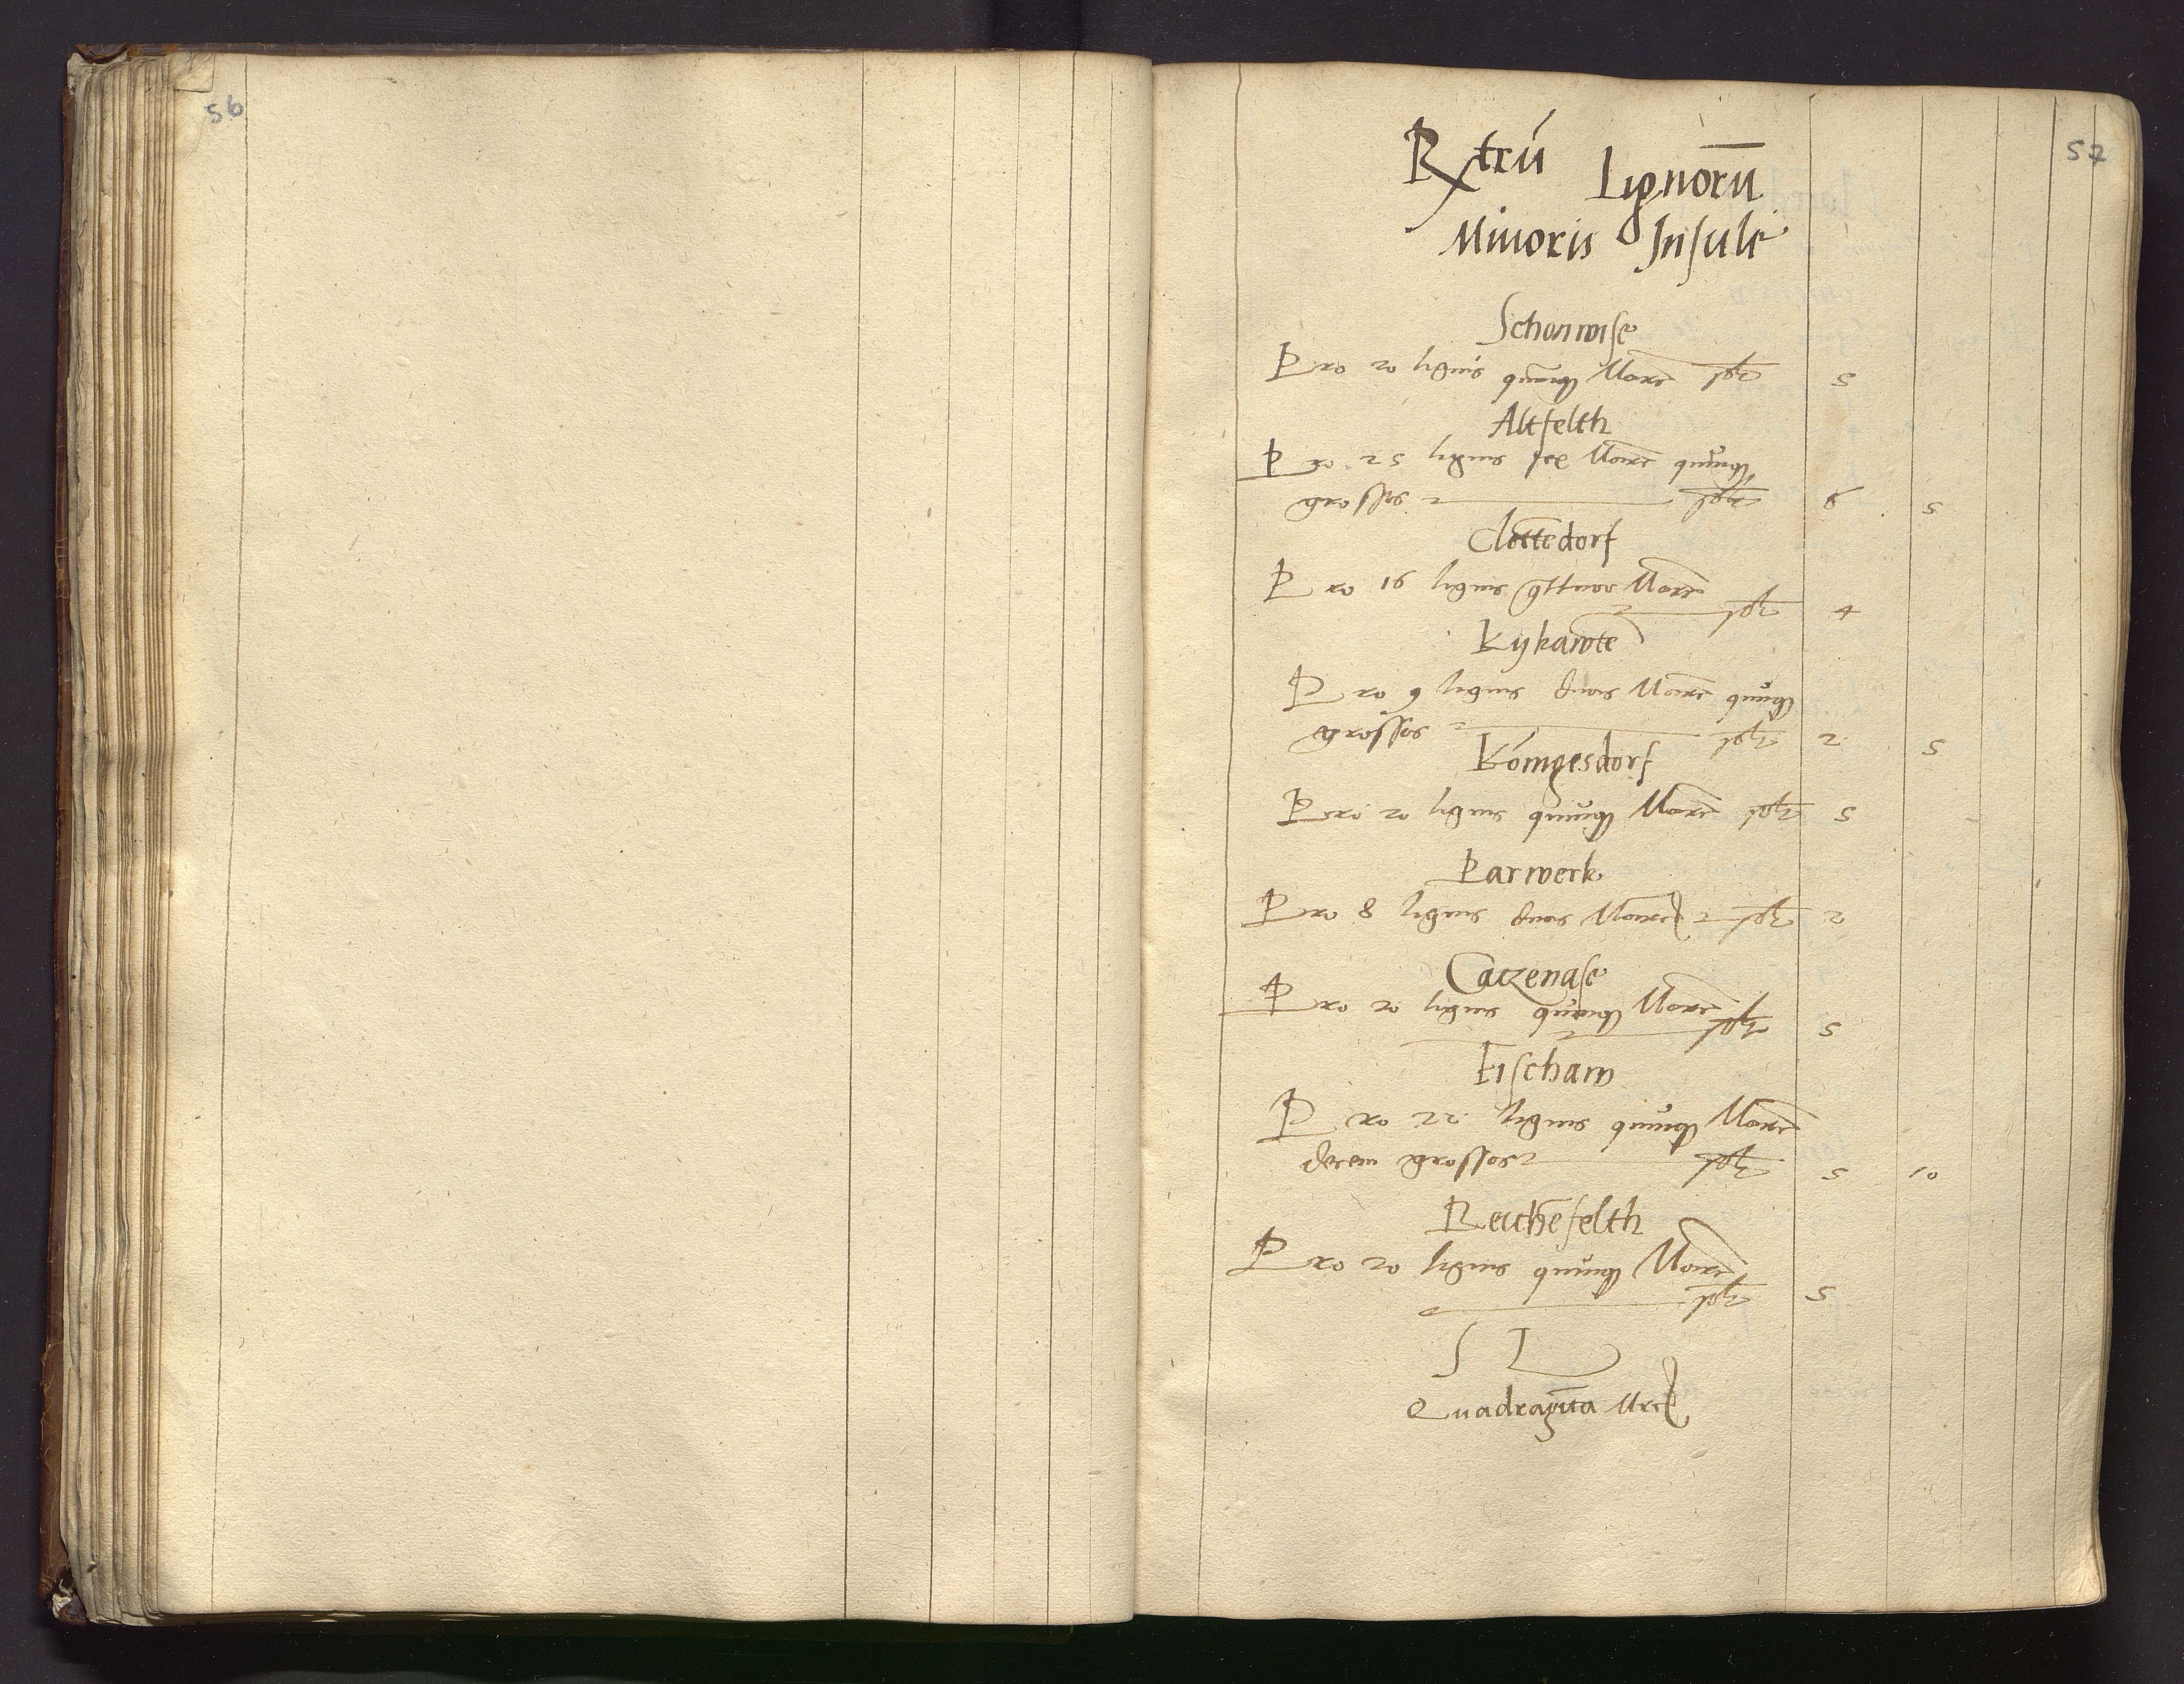 56
57
Rxtrū Lignorū
Minoris Insule
Schonwise
Pro 20 lignis quīqꝫ Marc 5
Altfelth
Pro 25 lignis sex Marc quinqꝫ
grossos 6 5
Clottēdorf
Pro 16 lignis qttuor Marc
4
Kykawte
Pro 9 lignis duas Marc quinqꝫ
grossos 2 5
Königesdorf
Pro 20 lignis quinqꝫ Marc 5
Parwerk
Pro 8 lignis duas Marc 2
Caczenase
Pro 20 lignis quinqꝫ Marc
5
Fischaw
Pro 22 lignis quinqꝫ Marc
decem grossos 5 10
Reichēfelth
Pro 20 lignis quinqꝫ Marc
5
S L
Quadragīta Mrc